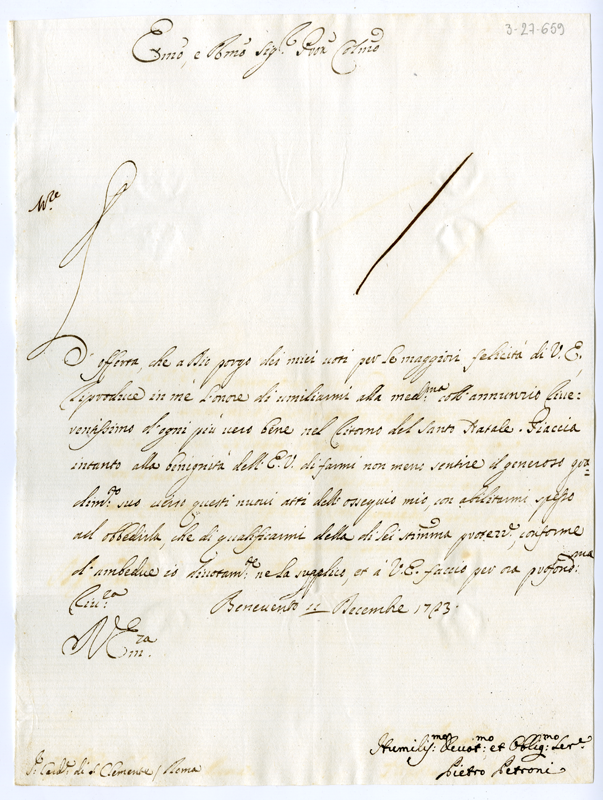 3-27-659
Emo, e Rmo Sigr. Pron Colmo
L'offerta, che a Dio porgo dei miei voti per le maggiori felicità di V. E.
riproduce in mè l'onore di umiliarmi alla medma coll'annunzio rive-
rentissimo d'ogni più vero bene nel ritorno del Santo Natale. Piaccia
intanto alla benignità dell'E. V. di farmi non meno sentire il generoso gra-
dimto suo verso questi nuovi atti dell'ossequio mio, con abilitarmi spesso
ad obbedirla, che di qualificarmi della di lei stimma protezze, conforme
d'ambedue io divotamte ne la supplico, et à V. E. faccio per ora profondma
rivza
Benevento 11 Decembre 1723.
V. Era
Em.
Humilismo: Devotmo: et Obligmo: Sere
Pietro Petroni
Sr. Cardl. di S. Clemente / Roma